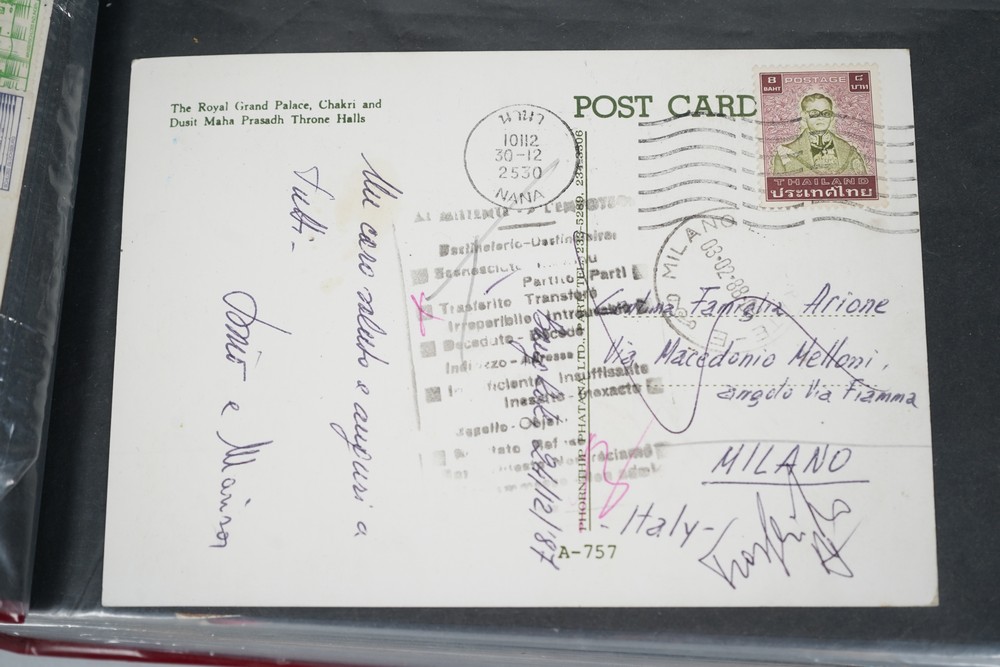 The Royal Grand Palace, Chakri and
Dusit Maha Prasadh Throne Halls
POST CARD
8 POSTAGE ๘
BAHT บาท
THAILAND
ประเทศไทย
นานา
10112
30-12
2530
NANA
Un caro saluto e auguri a
tutti-
e
24/12/87
AL MITTENTE
Partito Parti
Trasferito Transféré
Irreperibile Introuvable
Deceduto-Décédé
Indirizzo-Adresse
Insufficiente Insuffisante
Inesatto-Inexacte
PHORNTHIP PHATANA LTD., PART. TEL.
MILANO
03-02-88
Famiglia Arione
Via Macedonio Melloni,
angolo Via Fiamma
MILANO
-Italy-
A-757